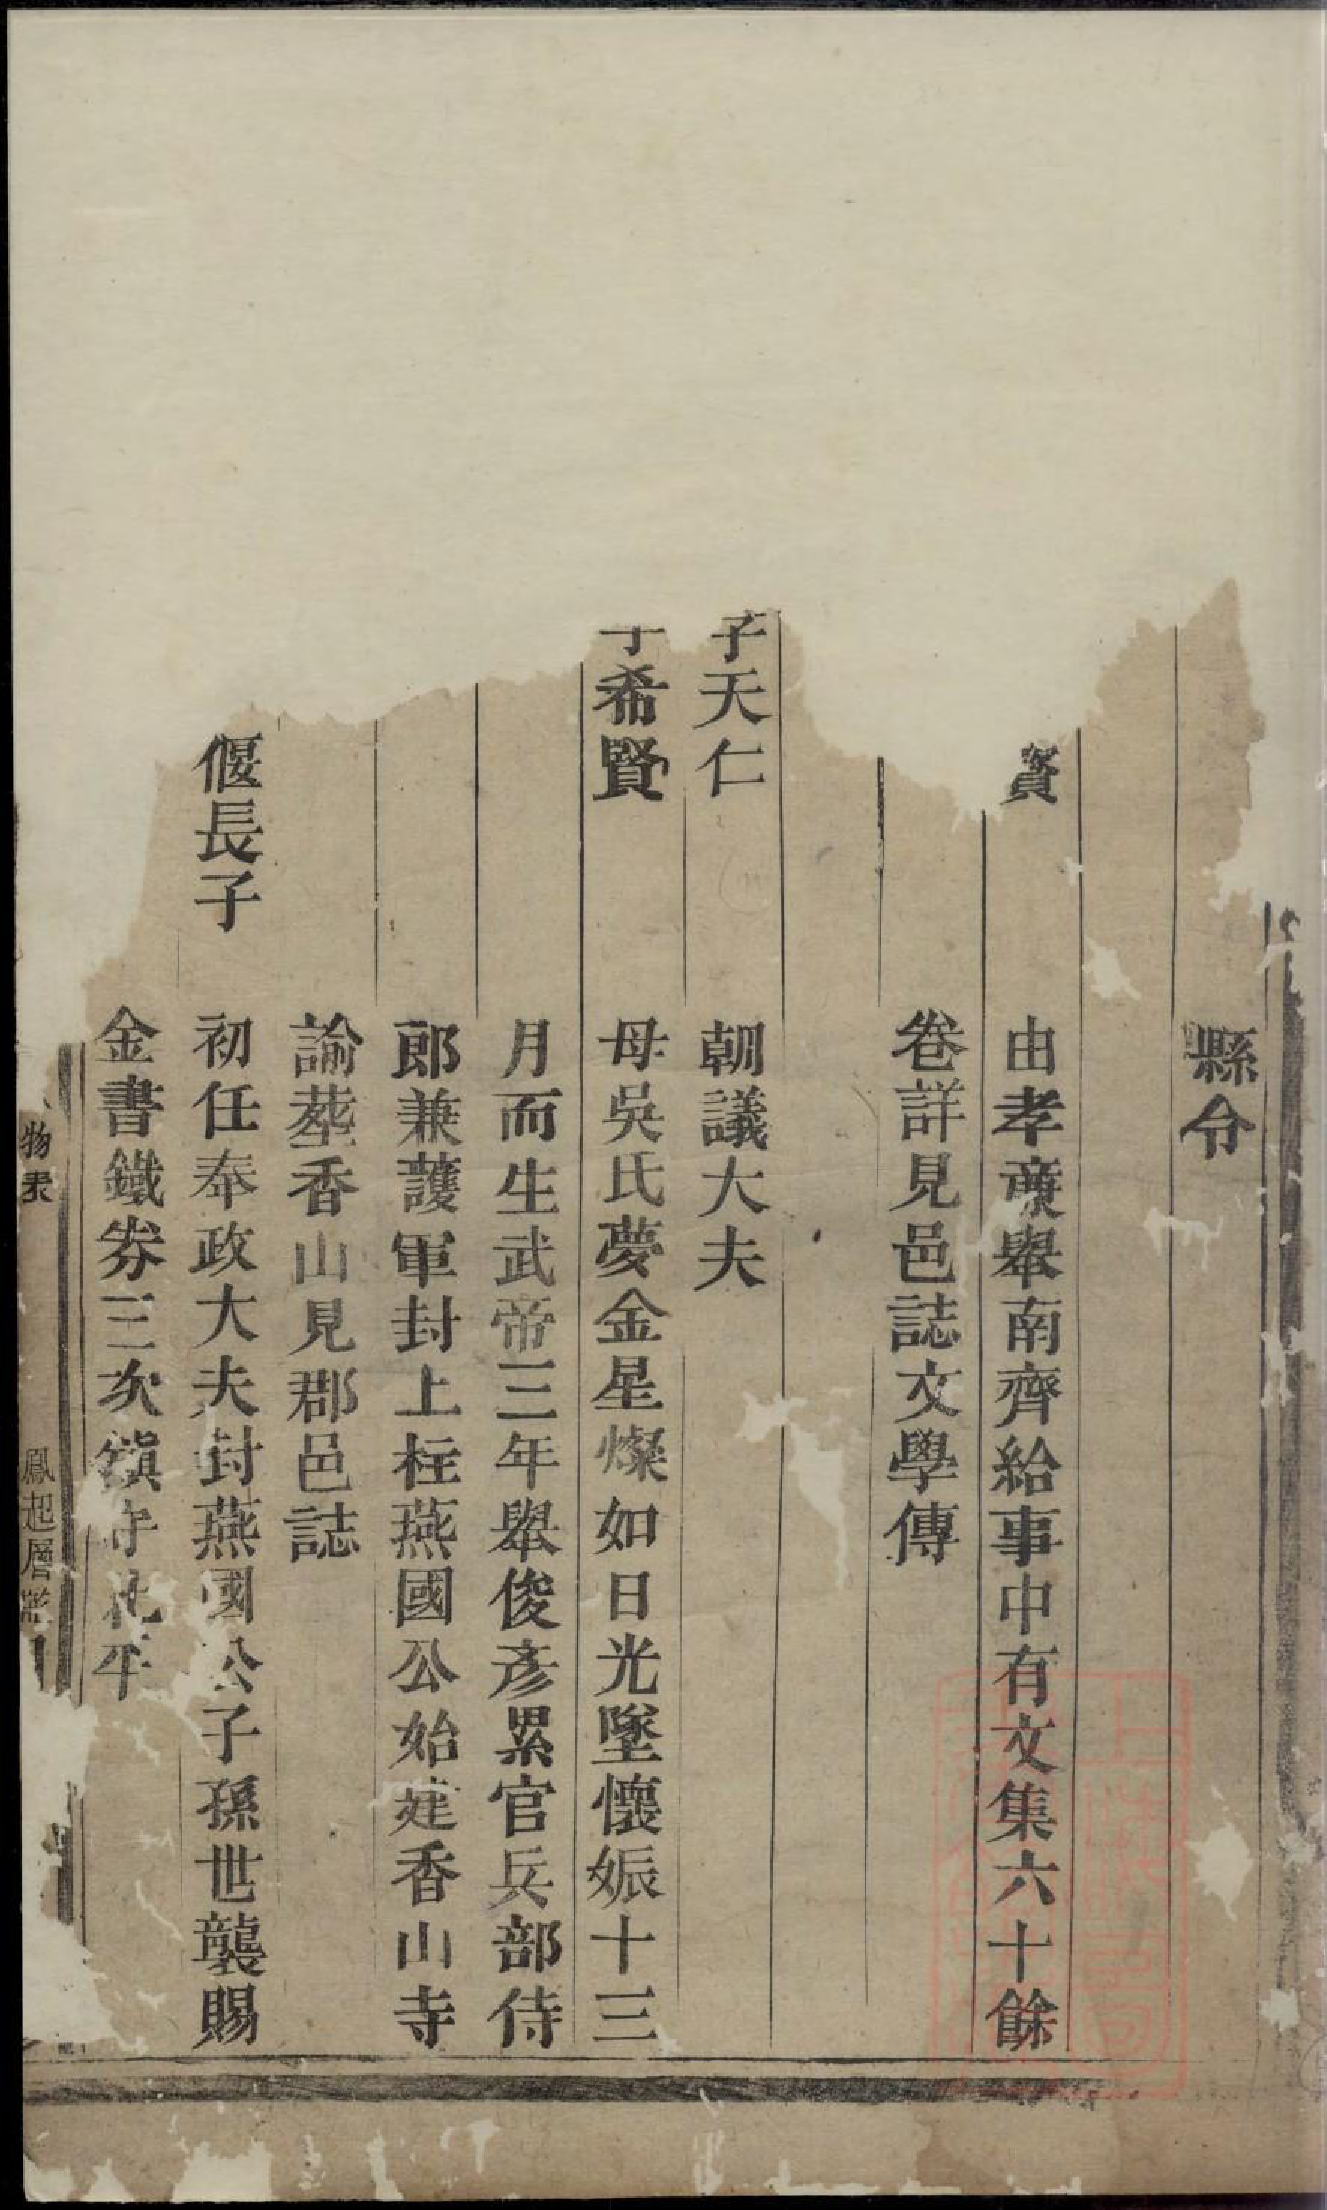 縣令
資 由孝廉舉南齊給事中有文集六十餘
卷詳見邑誌文學傳
子天仁 朝議大夫
子希賢 母吳氏夢金星燦如日光墜懷娠十三
月而生武帝三年舉俊彥累官兵部侍
郎兼護軍封上柱燕國公始建香山寺
諭塟香山見郡邑誌
偃長子 初任奉政大夫封燕國公子孫世襲賜
金書鐵券三次鎮守
物表 鳳起層